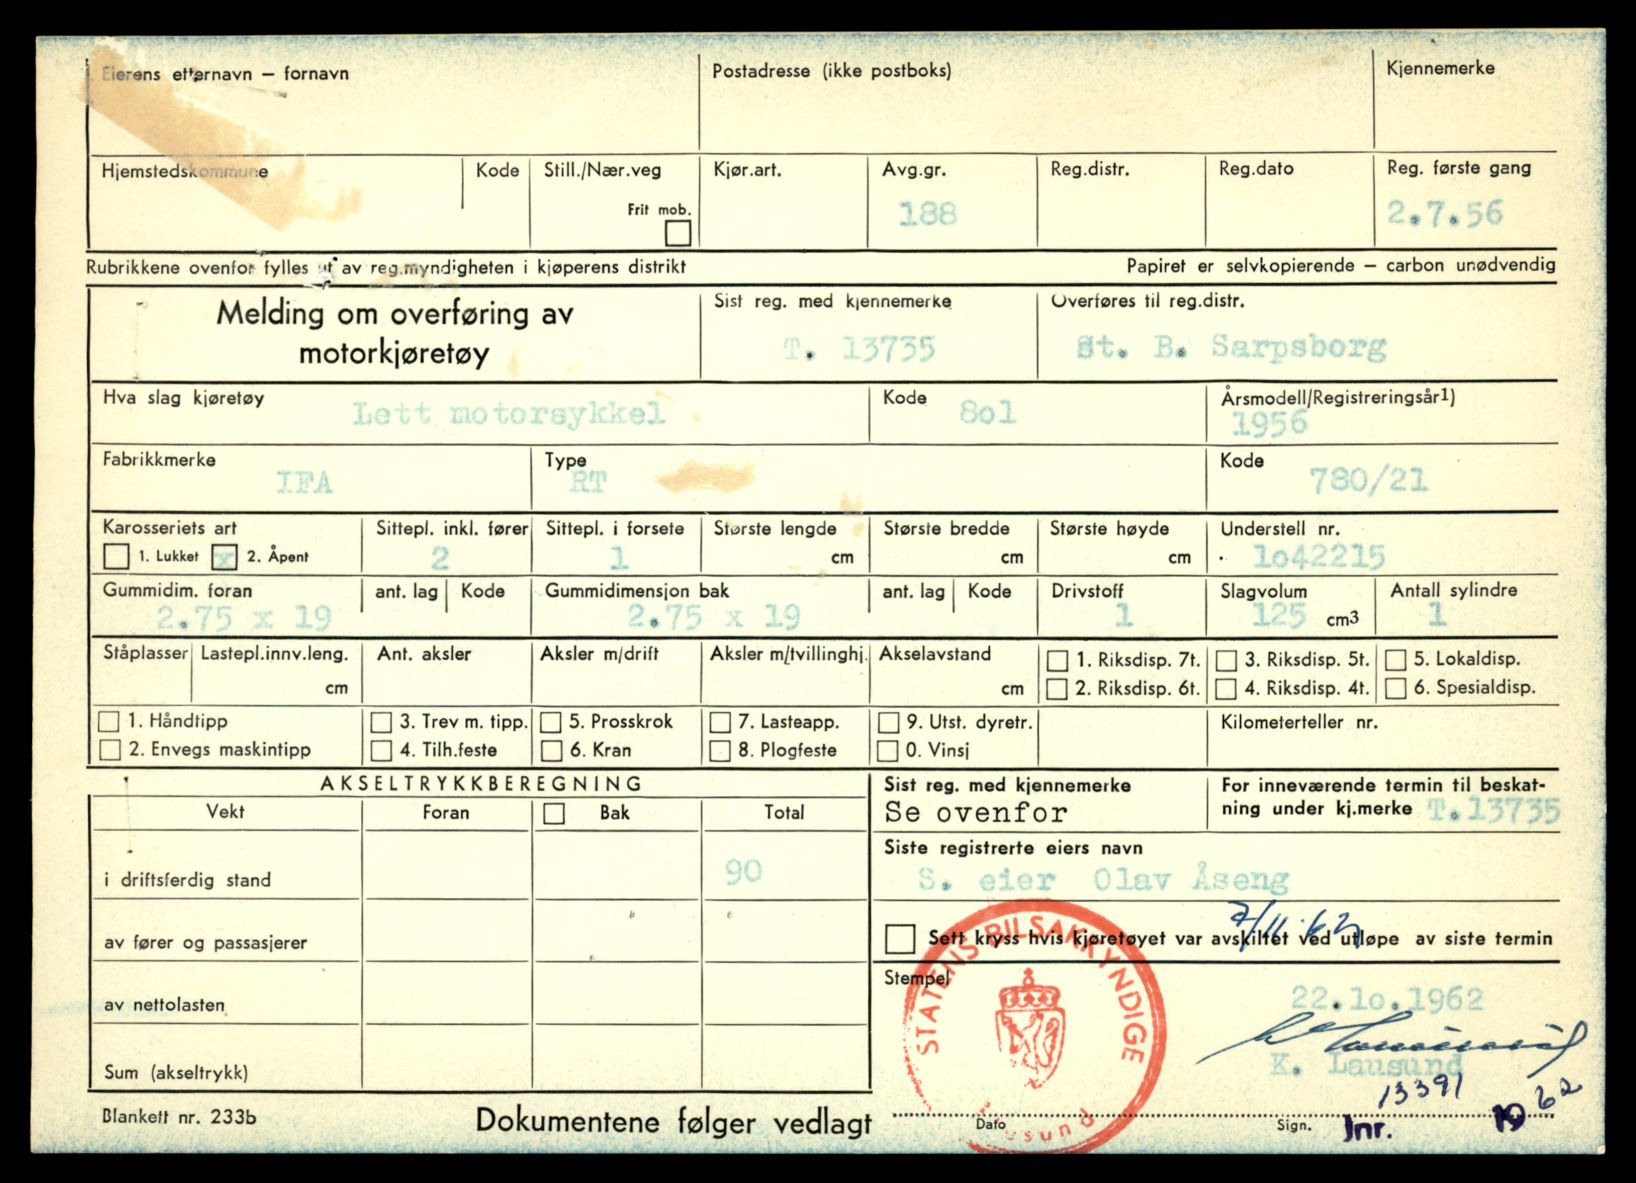 Eierens etternavn – fornavn
Postadresse (ikke postboks)
Kjennemerke
Hjemstedskommune
Kode
Still./Nær.veg
Frit mob.
Kjør.art.
Avg.gr.
188
Reg.distr.
Reg.dato
Reg. første gang
2.7.56
Rubrikkene ovenfor fylles ut av reg.myndigheten i kjøperens distrikt
Papiret er selvkopierende – carbon unødvendig
Melding om overføring av
motorkjøretøy
Sist reg. med kjennemerke
T. 13735
Overføres til reg.distr.
St. B. Sarpsborg
Hva slag kjøretøy
Lett motorsykkel
Kode
8o1
Årsmodell/Registreringsår1)
1956
Fabrikkmerke
IFA
Type
RT
Kode
780/21
Karosseriets art
1. Lukket x 2. Åpent
Sittepl. inkl. fører
2
Sittepl. i forsete
1
Største lengde
cm
Største bredde
cm
Største høyde
cm
Understell nr.
1o42215
Gummidim. foran
2.75 x 19
ant. lag
Kode
Gummidimensjon bak
2.75 x 19
ant. lag
Kode
Drivstoff
1
Slagvolum
125 cm3
Antall sylindre
1
Ståplasser
Lastepl.innv.leng.
cm
Ant. aksler
Aksler m/drift
Aksler m/tvillinghj.
Akselavstand
cm
1. Riksdisp. 7t.
2. Riksdisp. 6t.
3. Riksdisp. 5t.
4. Riksdisp. 4t.
5. Lokaldisp.
6. Spesialdisp.
1. Håndtipp
2. Envegs maskintipp
3. Trev m. tipp.
4. Tilh.feste
5. Prosskrok
6. Kran
7. Lasteapp.
8. Plogfeste
9. Utst. dyretr.
0. Vinsj
Kilometerteller nr.
AKSELTRYKKBEREGNING
Vekt
Foran
Bak
Total
i driftsferdig stand
90
av fører og passasjerer
av nettolasten
Sum (akseltrykk)
Sist reg. med kjennemerke
Se ovenfor
For inneværende termin til beskat-
ning under kj.merke T.13735
Siste registrerte eiers navn
S. eier Olav Åseng
7/11.62
Sett kryss hvis kjøretøyet var avskiltet ved utløpe av siste termin
Stempel
STATENS BILSAKKYNDIGE
22.1o.1962
K. Lausund
13391 62
Dato
Sign.
Jnr. 19
Blankett nr. 233b
Dokumentene følger vedlagt